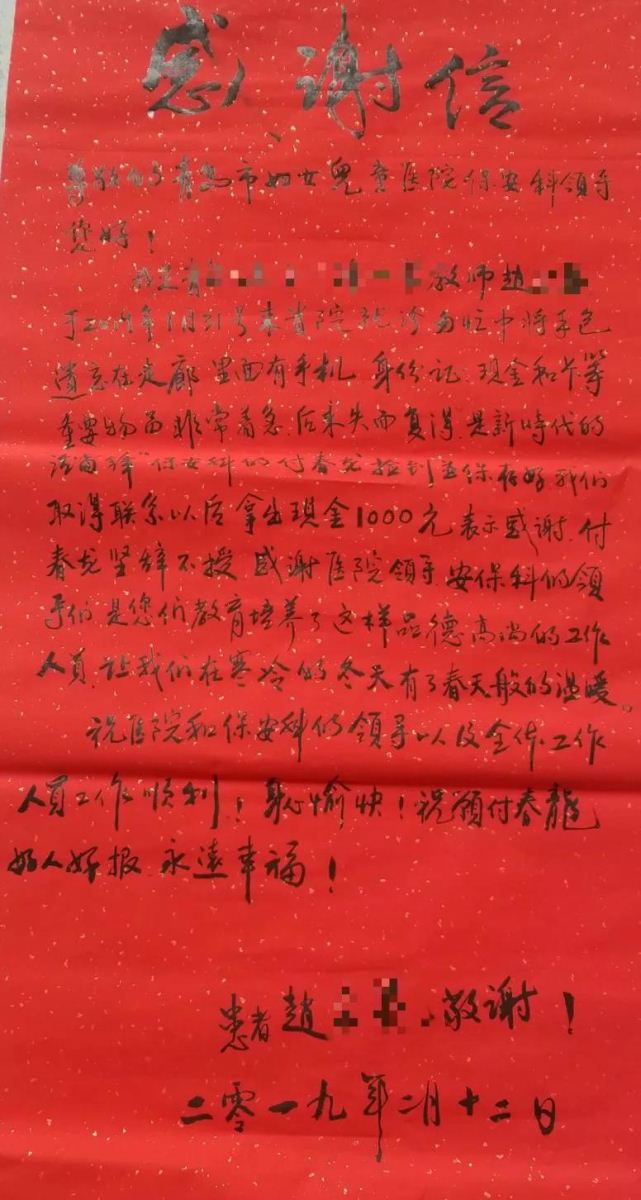 感谢信
尊敬的青岛市妇女儿童医院保安科领导
您好！
我是青 教师赵
于2019年1月31号来贵院就诊匆忙中将手包
遗忘在走廊里面有手机身份证现金和卡等
重要物品非常着急后来失而复得是新時代的
活雷锋"保安科的付春龙捡到并保存好我们
取得联系以后拿出现金1000元表示感谢付
春龙坚辞不授感谢医院领导安保科的领
导们是您们教育培养了这样品德高尚的工作
人员让我们在寒冷的冬天有了春天般的温暖。
祝医院和保安科的领导以及全体工作
人员工作顺利！身心愉快！祝愿付春龍
好人好报永远幸福！
患者赵 敬谢！
二零一九年二月十二日